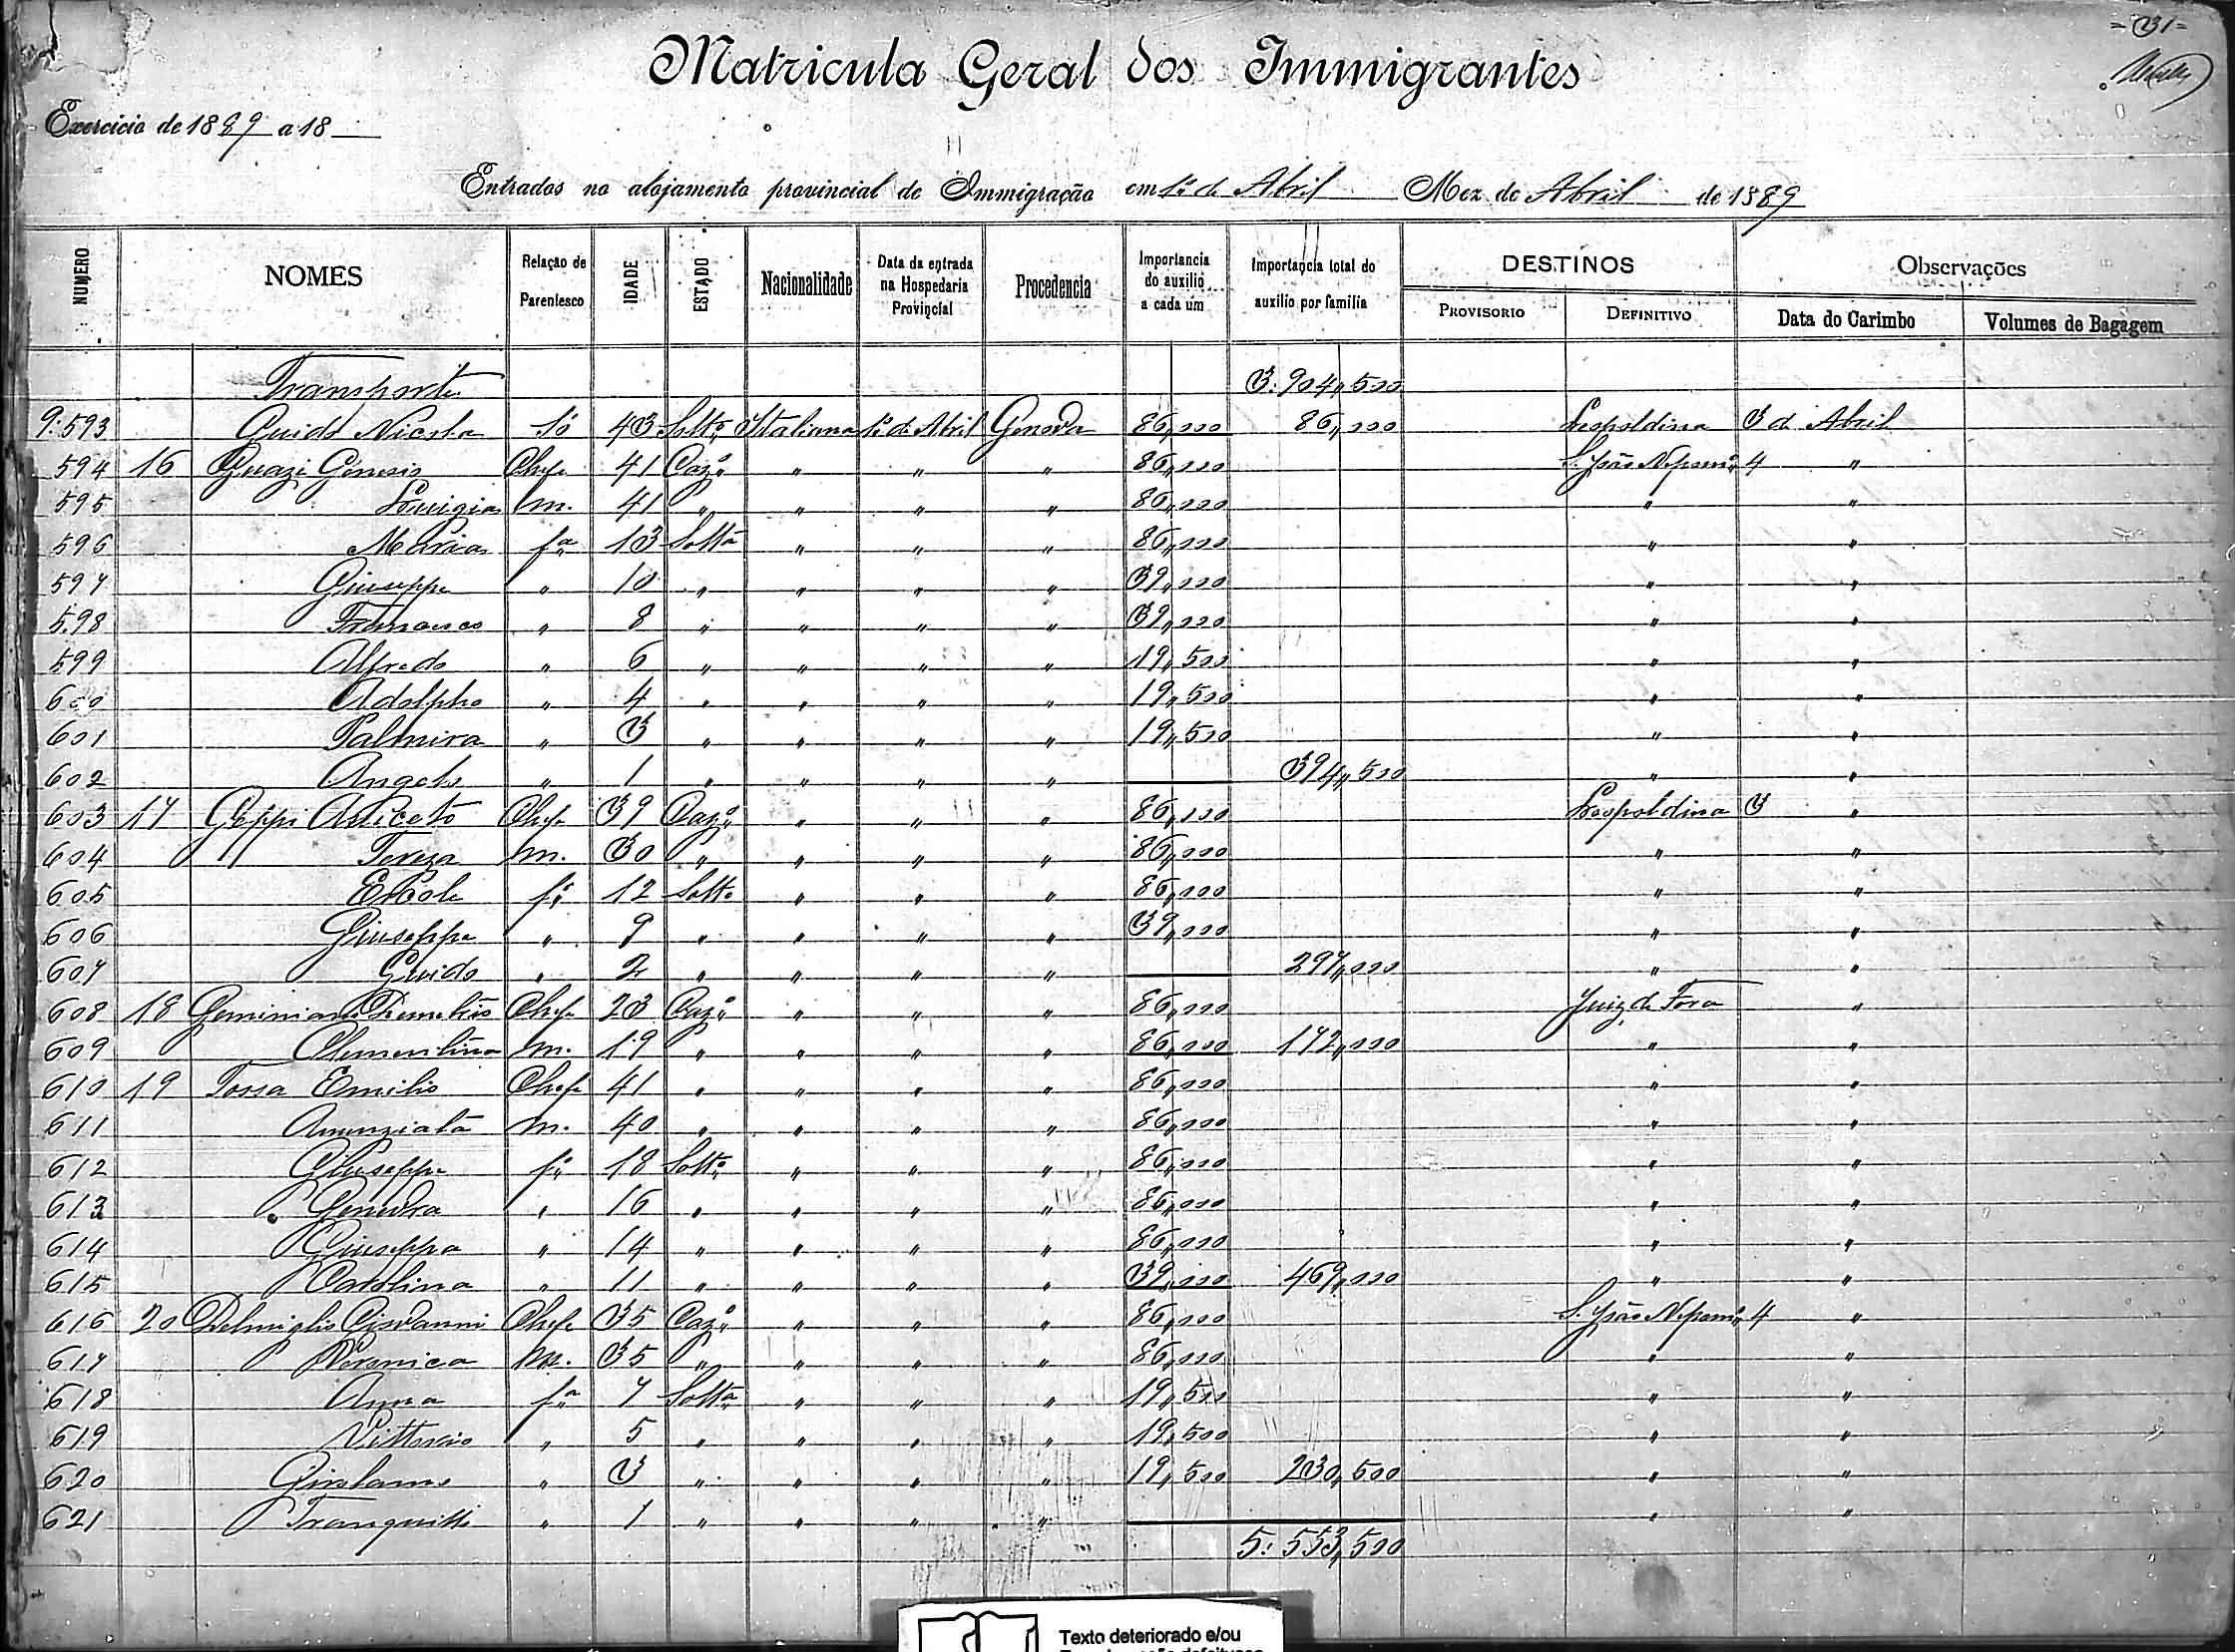 = 31 =
Matricula Geral dos Immigrantes
Exercicio de 1889 a 18
Entrados no alojamento provincial de Immigração em 1º de Abril Mez de Abril de 1889
NUMERO NOMES Relação de Parentesco IDADE ESTADO Nacionalidade Data da entrada na Hospedaria Provincial Procedencia Importancia do auxilio a cada um Importancia total do auxilio por familia DESTINOS Observações
PROVISORIO DEFINITIVO Data do Carimbo Volumes de Bagagem
Transporte 3:904,,500
9:593 Guido Nicola Só 43 Soltº Italiana 1º de Abril Genova 86,,000 86,,000 Leopoldina 3 de Abril
594 16 Guazi Genesio Chefe 41 Cazº " " " 86,,000 S. João Nepomº 4 "
595 Luigia m. 41 " " " " 86,,000 " "
596 Maria fª 13 Soltª " " " 86,,000 " "
597 Giuseppe " 10 " " " " 39,,000 " "
598 Francesco " 8 " " " " 39,,000 " "
599 Alfredo " 6 " " " " 19,,500 " "
600 Adolpho " 4 " " " " 19,,500 " "
601 Palmira " 3 " " " " 19,,500 " "
602 Angelo " 1 " " " " 394,,500 " "
603 17 Geppi Aniceto Chefe 39 Cazº " " " 86,,000 Leopoldina 3 "
604 Tereza m. 30 " " " " 86,,000 " "
605 Ercole fº 12 Soltº " " " 86,,000 " "
606 Giuseppe " 9 " " " " 39,,000 " "
607 Guido " 2 " " " " 297,,000 " "
608 18 Geminiani Demetrio Chefe 23 Cazº " " " 86,,000 Juiz de Fora "
609 Clementina m. 19 " " " " 86,,000 172,,000 " "
610 19 Tossa Emilio Chefe 41 " " " " 86,,000 " "
611 Anunziata m. 40 " " " " 86,,000 " "
612 Giuseppe fº 18 Soltº " " " 86,,000 " "
613 Genedra " 16 " " " " 86,,000 " "
614 Giuseppa " 14 " " " " 86,,000 " "
615 Carolina " 11 " " " " 39,,000 469,,000 " "
616 20 Delmiglio Giovanni Chefe 35 Cazº " " " 86,,000 S. João Nepomº 4 "
617 Veronica m. 35 " " " " 86,,000 " "
618 Anna fª 7 Soltª " " " 19,,500 " "
619 Vittorio " 5 " " " " 19,,500 " "
620 Girolamo " 3 " " " " 19,,500 230,,500 " "
621 Tranquillo " 1 " " " " " "
5:553,,500
Texto deteriorado e/ou